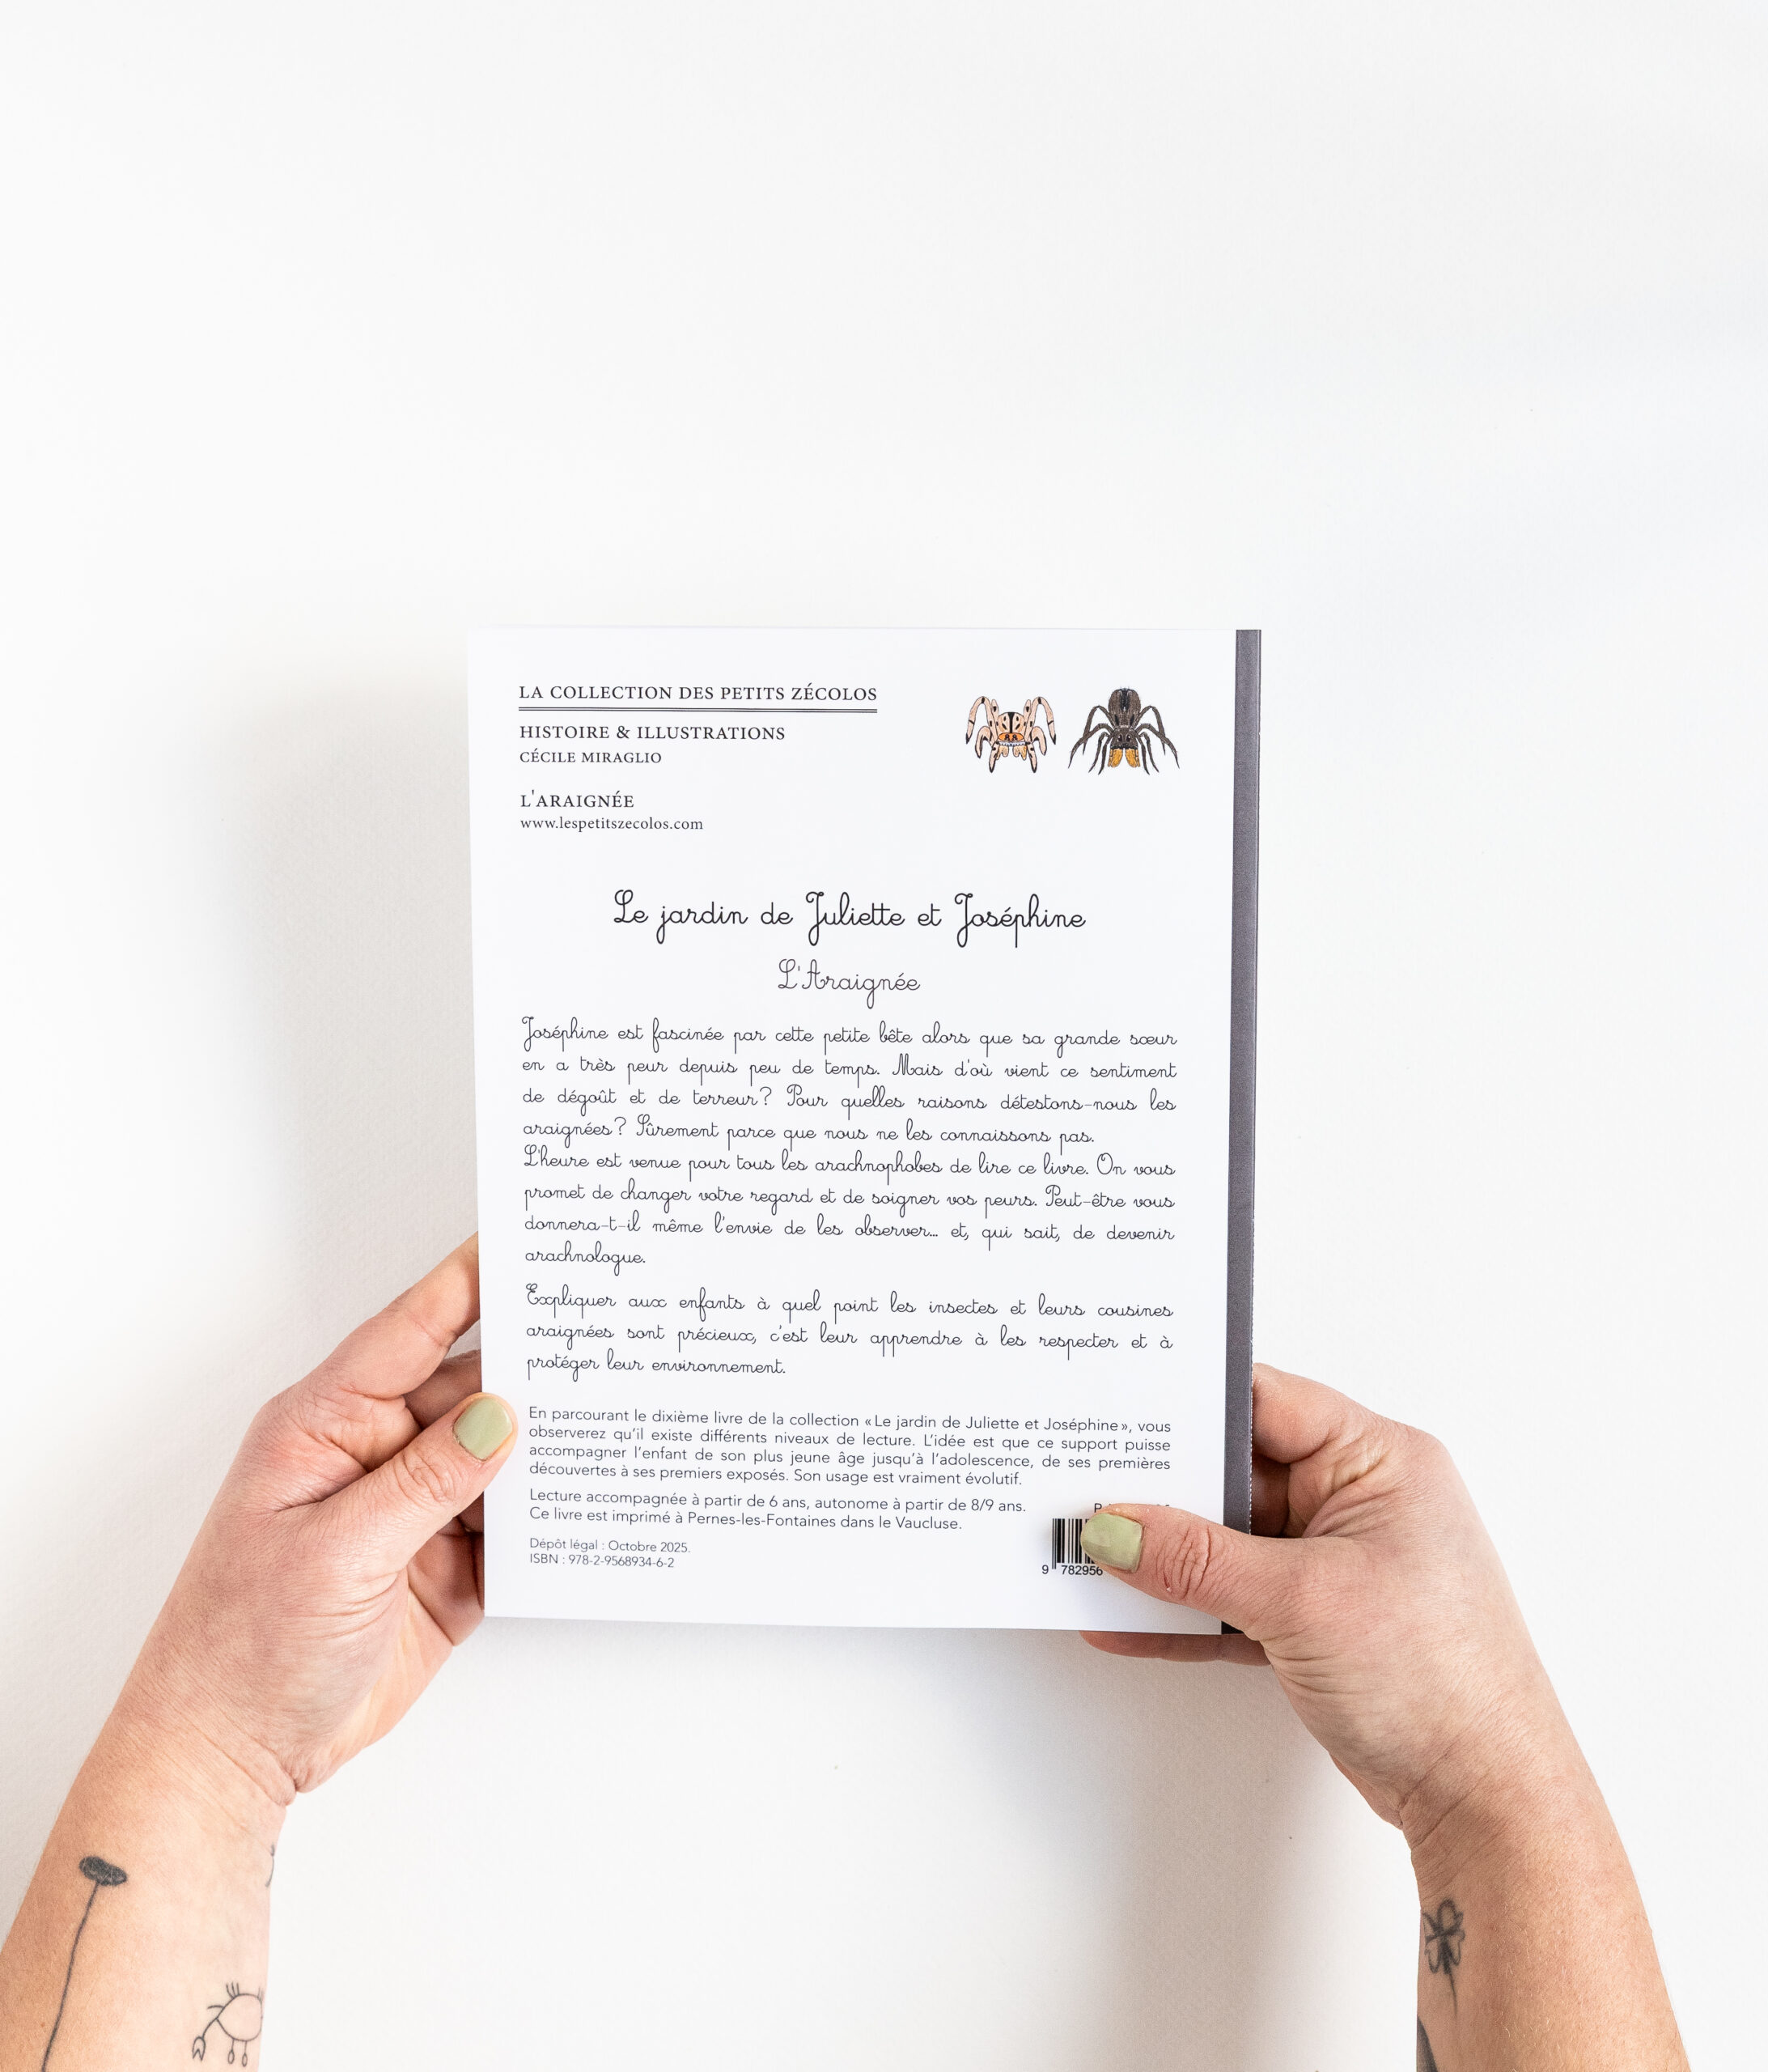 LA COLLECTION DES PETITS ZÉCOLOS
HISTOIRE & ILLUSTRATIONS
CÉCILE MIRAGLIO
L'ARAIGNÉE
www.lespetitszecolos.com
Le jardin de Juliette et Joséphine
L'Araignée
Joséphine est fascinée par cette petite bête alors que sa grande sœur
en a très peur depuis peu de temps. Mais d'où vient ce sentiment
de dégoût et de terreur? Pour quelles raisons détestons-nous les
araignées? Sûrement parce que nous ne les connaissons pas.
L'heure est venue pour tous les arachnophobes de lire ce livre. On vous
promet de changer votre regard et de soigner vos peurs. Peut-être vous
donnera-t-il même l'envie de les observer... et, qui sait, de devenir
arachnologue.
Expliquer aux enfants à quel point les insectes et leurs cousines
araignées sont précieux, c'est leur apprendre à les respecter et à
protéger leur environnement.
En parcourant le dixième livre de la collection «Le jardin de Juliette et Joséphine», vous
observerez qu'il existe différents niveaux de lecture. L'idée est que ce support puisse
accompagner l'enfant de son plus jeune âge jusqu'à l'adolescence, de ses premières
découvertes à ses premiers exposés. Son usage est vraiment évolutif.
Lecture accompagnée à partir de 6 ans, autonome à partir de 8/9 ans.
Ce livre est imprimé à Pernes-les-Fontaines dans le Vaucluse.
Dépôt légal : Octobre 2025.
ISBN : 978-2-9568934-6-2
9 782956